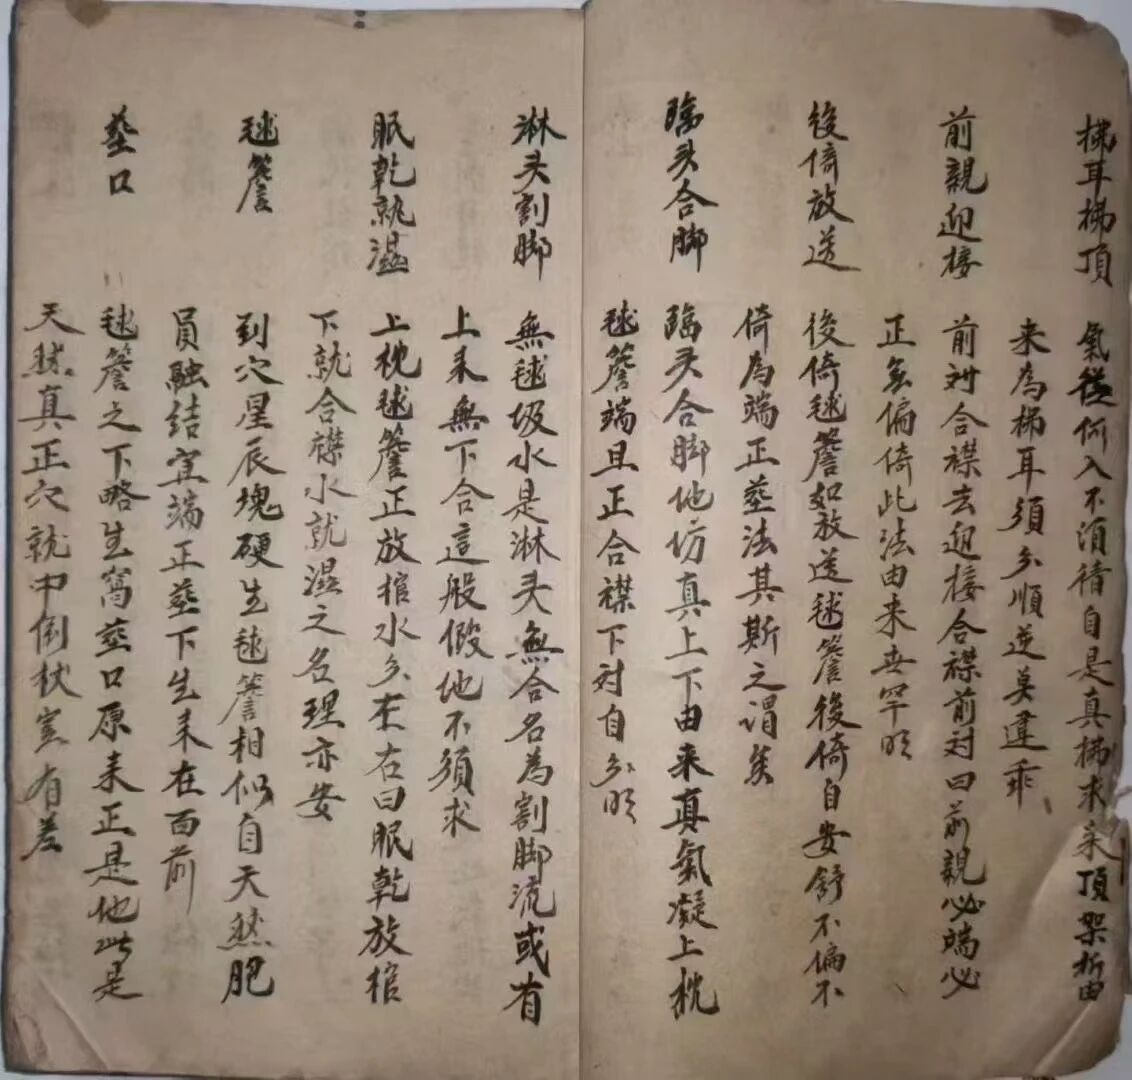 拂耳拂頂　氣從何入不須猜自是真拂求来頂架折由
来為拂耳須分順逆莫違乖
前親迎接　前对合襟去迎接合襟前对曰前親必端必
正無偏倚此法由来世罕明
後倚放送　後倚毬簷如放送毬簷後倚自安舒不偏不
倚為端正葬法其斯之謂矣
臨头合脚　臨头合脚他仿真上下由来真氣凝上枕
毬簷端且正合襟下对自分明
淋头割脚　無毬圾水是淋头無合名為割脚流或有
上来無下合這般假地不須求
眠乾就濕　上枕毬簷正放棺水分左右曰眠乾放棺
下就合襟水就濕之名理亦安
毬簷　到穴星辰塊硬生毬簷相似自天然肥
員融結宜端正葬下生来在面前
葬口　毬簷之下略生窩葬口原来正是他此是
天然真正穴就中倒杖豈有差